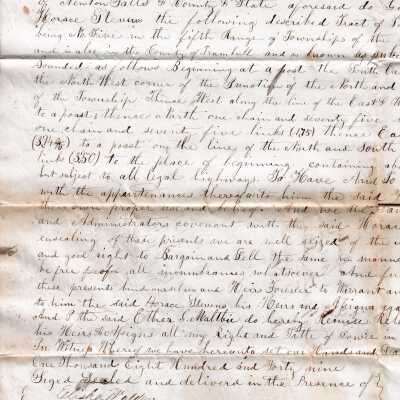 of Newton Falls & County & State aforesaid do
Horace Stevens the following described Tract of
being No Five in the fifth Range of Townships of the
and is also in the County of Trumbull and is known as
bounded as follows Beginning at a post the South
the North West corner of the Junction of the North and
of the Township Thence West along the line of the East &
to a post; thence North one chain and seventy five
one chain and seventy five links (1,75) thence
to a post on the line of the North and South
links (350) to the place of beginning containing
but subject to all legal highways. To Have And To
with the appurtenances thereunto him the said
their own proper use and And we the
and Administrators covenant with the said Horace
ensealing of these presents we are well seized of the
and good right to Bargain and Sell the same in manner
be free from all incumbrances whatsoever and
these presents bind ourselves and Heirs Forever to Warrant and
to him the said Horace Stevens his Heirs and Assigns
And I the said do hereby Remise
his Heirs & Assigns all my Right and Title of Dower in
In Witness Whereof we have hereunto set our Hands and
One Thousand Eight Hundred and Forty nine
Signed Sealed and delivered in the Presence of